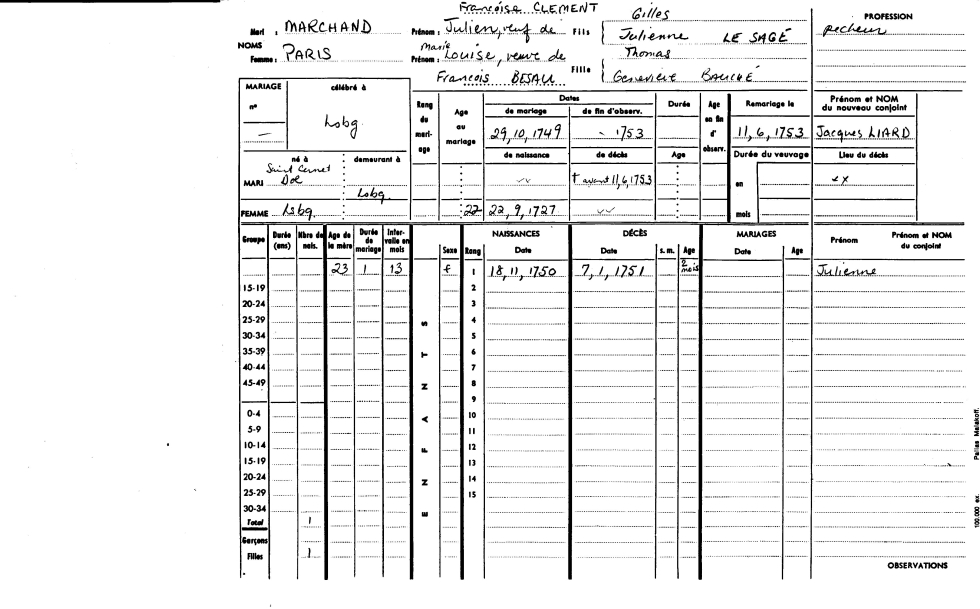 Françoise CLEMENT Gilles PROFESSION
Mari : MARCHAND Prénom : Julien, veuf de Fils Julienne LE SAGE pecheur
NOMS
Femme : PARIS Prénom : Marie Louise, veuve de Fille Thomas
François BESAU Geneviève BAUCHÉ
MARIAGE célébré à Rang du mariage Age au mariage Dates Durée Age en fin d'observ. Remariage le Prénom et NOM du nouveau conjoint
n° de mariage de fin d'observ.
— Lsbg. 29, 10, 1749 1753 11, 6, 1753 Jacques LIARD
né à demeurant à de naissance de décès Age Durée du veuvage Lieu du décès
Saint Cernet
MARI Dol Lsbg. vv † avant 11, 6, 1753 en xx
FEMME Lsbg. 22 22, 9, 1727 vv mois
Groupe Durée (ans) Nbre de nais. Age de la mère Durée de mariage Intervalle en mois Sexe Rang NAISSANCES Date DÉCÈS Date s. m. Age MARIAGES Date Age Prénom Prénom et NOM du conjoint
23 1 13 f 1 18, 11, 1750 7, 1, 1751 2 mois Julienne
15-19 2
20-24 3
25-29 4
30-34 5
35-39 6
40-44 7
45-49 8
9
0-4 10
5-9 11
10-14 12
15-19 13
20-24 14
25-29 15
30-34
ENFANTS
Total 1
Garçons
Filles 1
OBSERVATIONS
100.000 ex. Pallas Malakoff.